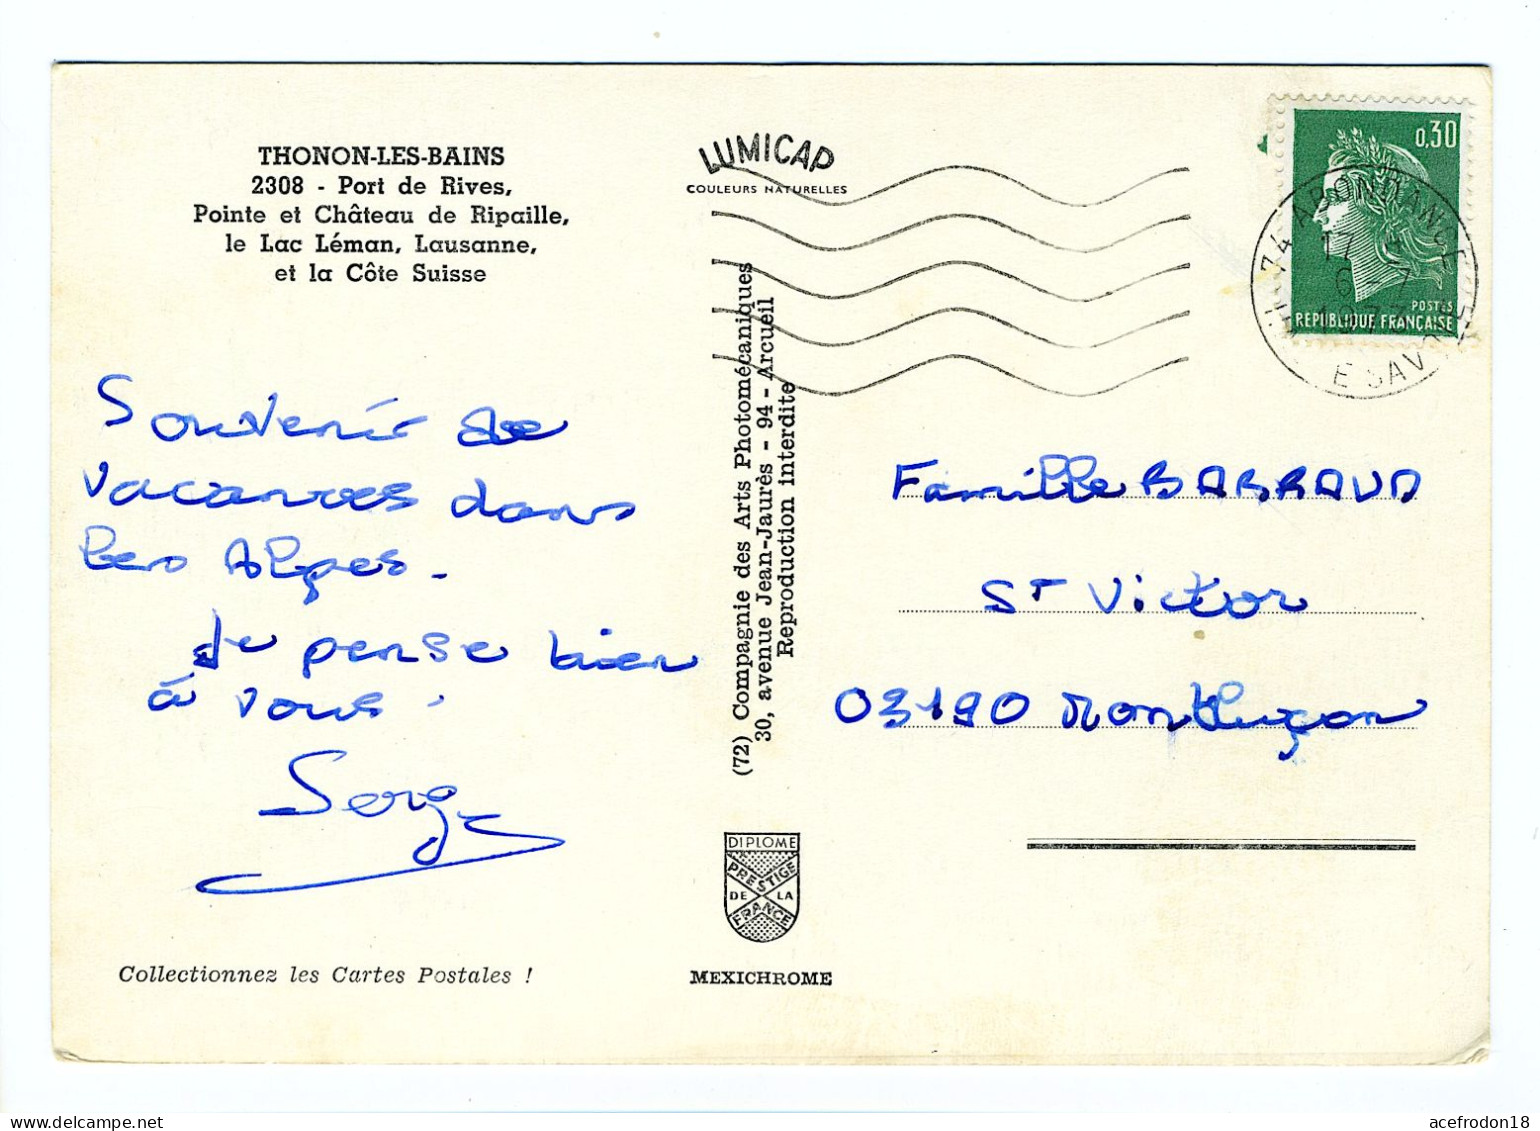 THONON-LES-BAINS
2308 - Port de Rives,
Pointe et Château de Ripaille,
le Lac Léman, Lausanne,
et la Côte Suisse
LUMICAP
COULEURS NATURELLES
0,30
POSTES
REPUBLIQUE FRANÇAISE
74 ABONDANCE
17 H
6 - 7
1973
E SAVOIE
Souvenir de
vacances dans
les Alpes.
Je pense bien
à vous.
Serge
(72) Compagnie des Arts Photomécaniques
30, avenue Jean-Jaurès - 94 - Arcueil
Reproduction interdite
Famille BARRAUD
St Victor
03190 Montluçon
DIPLOME
PRESTIGE
DE LA
FRANCE
Collectionnez les Cartes Postales !
MEXICHROME
acefrodon18